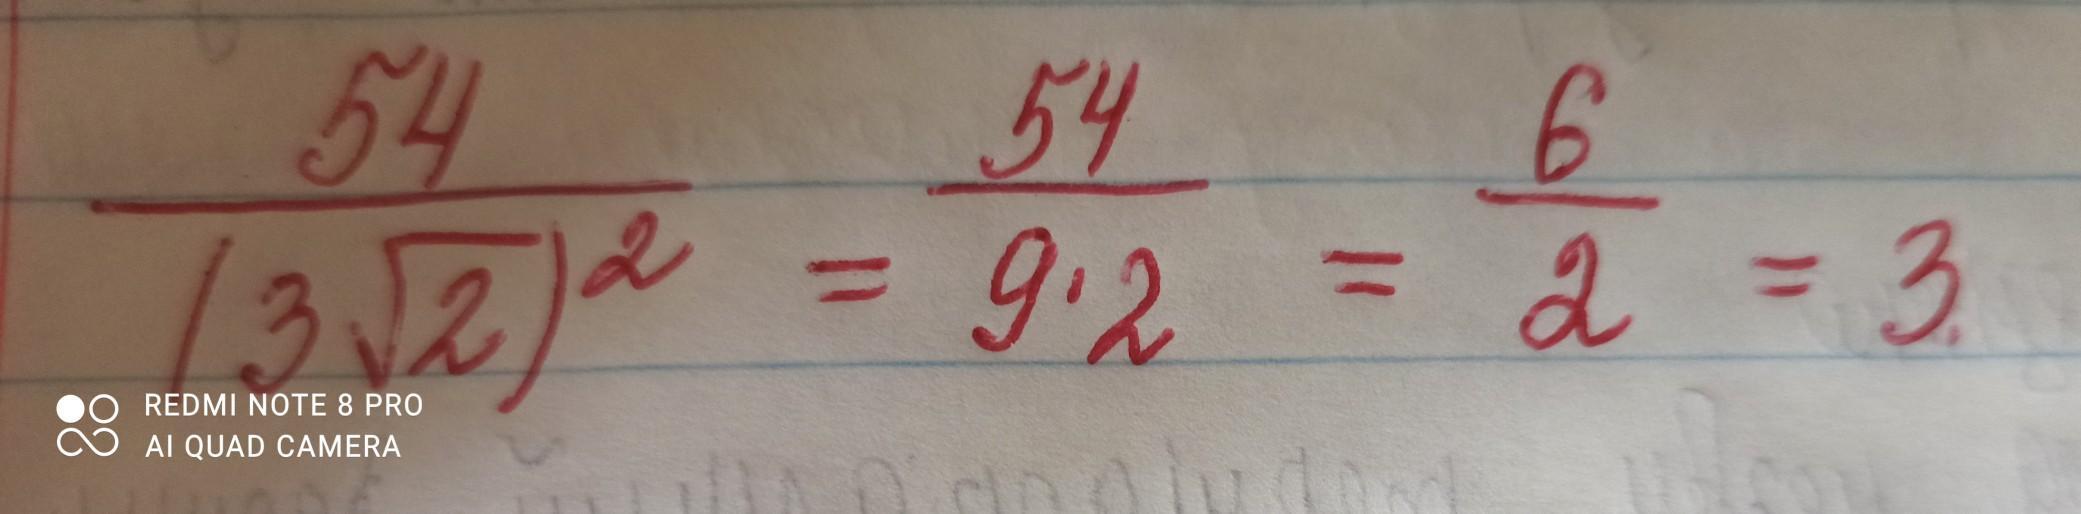 54/(3√2)² = 54/9·2 = 6/2 = 3.
REDMI NOTE 8 PRO
AI QUAD CAMERA